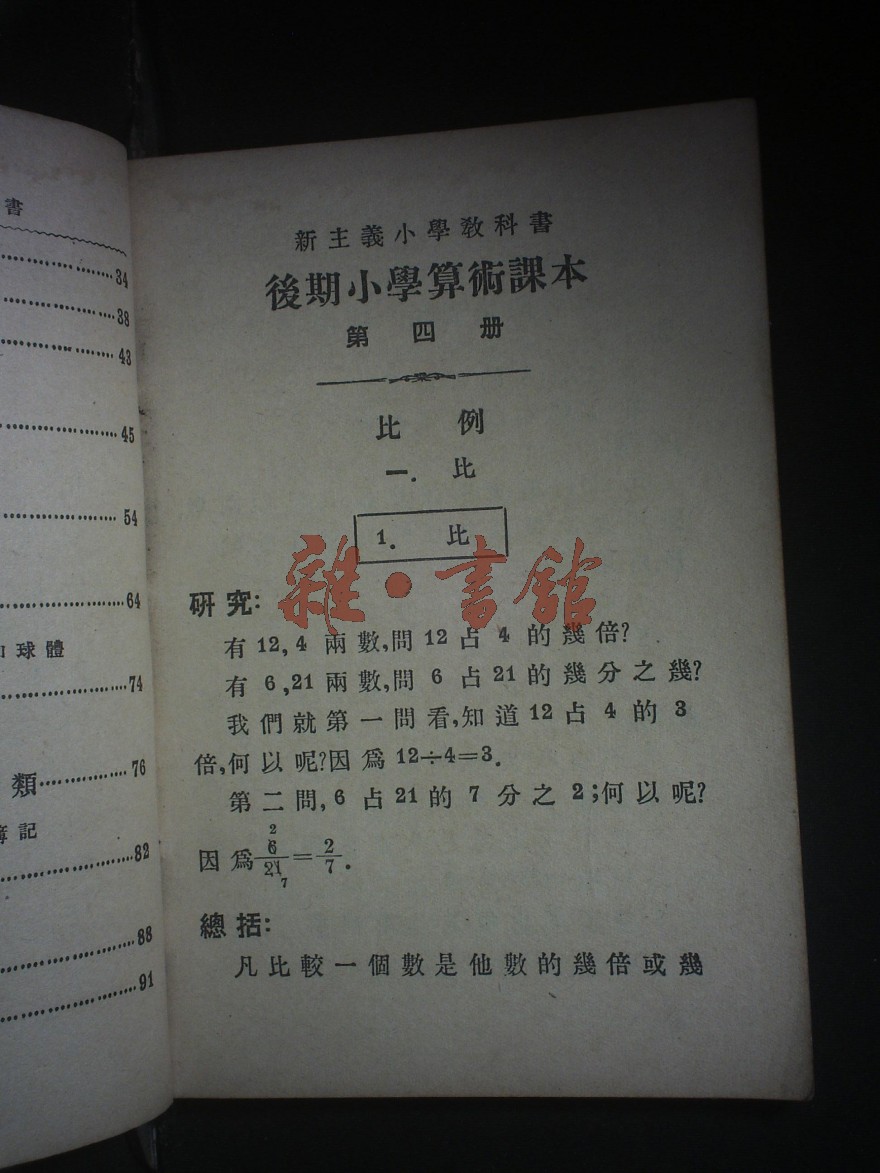 書
34
38
43
45
54
64
球體
74
類 76
簿記
82
88
91
新主義小學教科書
後期小學算術課本
第四册
比例
一. 比
1. 比
雜·書館
研究:
有12,4兩數,問12占4的幾倍?
有6,21兩數,問6占21的幾分之幾?
我們就第一問看,知道12占4的3
倍,何以呢?因爲12÷4=3.
第二問,6占21的7分之2;何以呢?
因爲 2 6/21 7 = 2/7.
總括:
凡比較一個數是他數的幾倍或幾